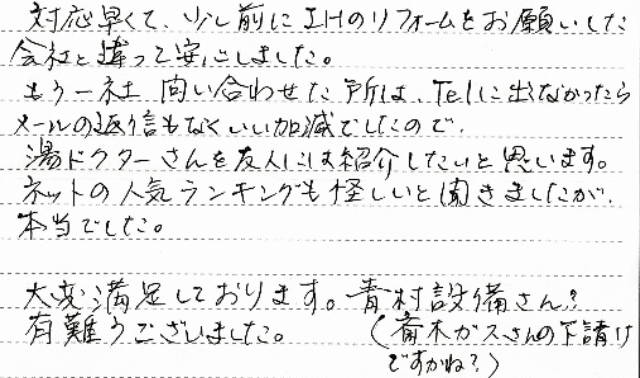 対応早くて、少し前にIHのリフォームをお願いした
会社と違って安心しました。
もう一社 問い合わせた所は、Telに出なかったら
メールの返信もなくいい加減でしたので、
湯ドクターさんを友人には紹介したいと思います。
ネットの人気ランキングも怪しいと聞きましたが、
本当でした。
大変満足しております。青村設備さん?
有難うございました。(斎木ガスさんの下請け
ですかね?)